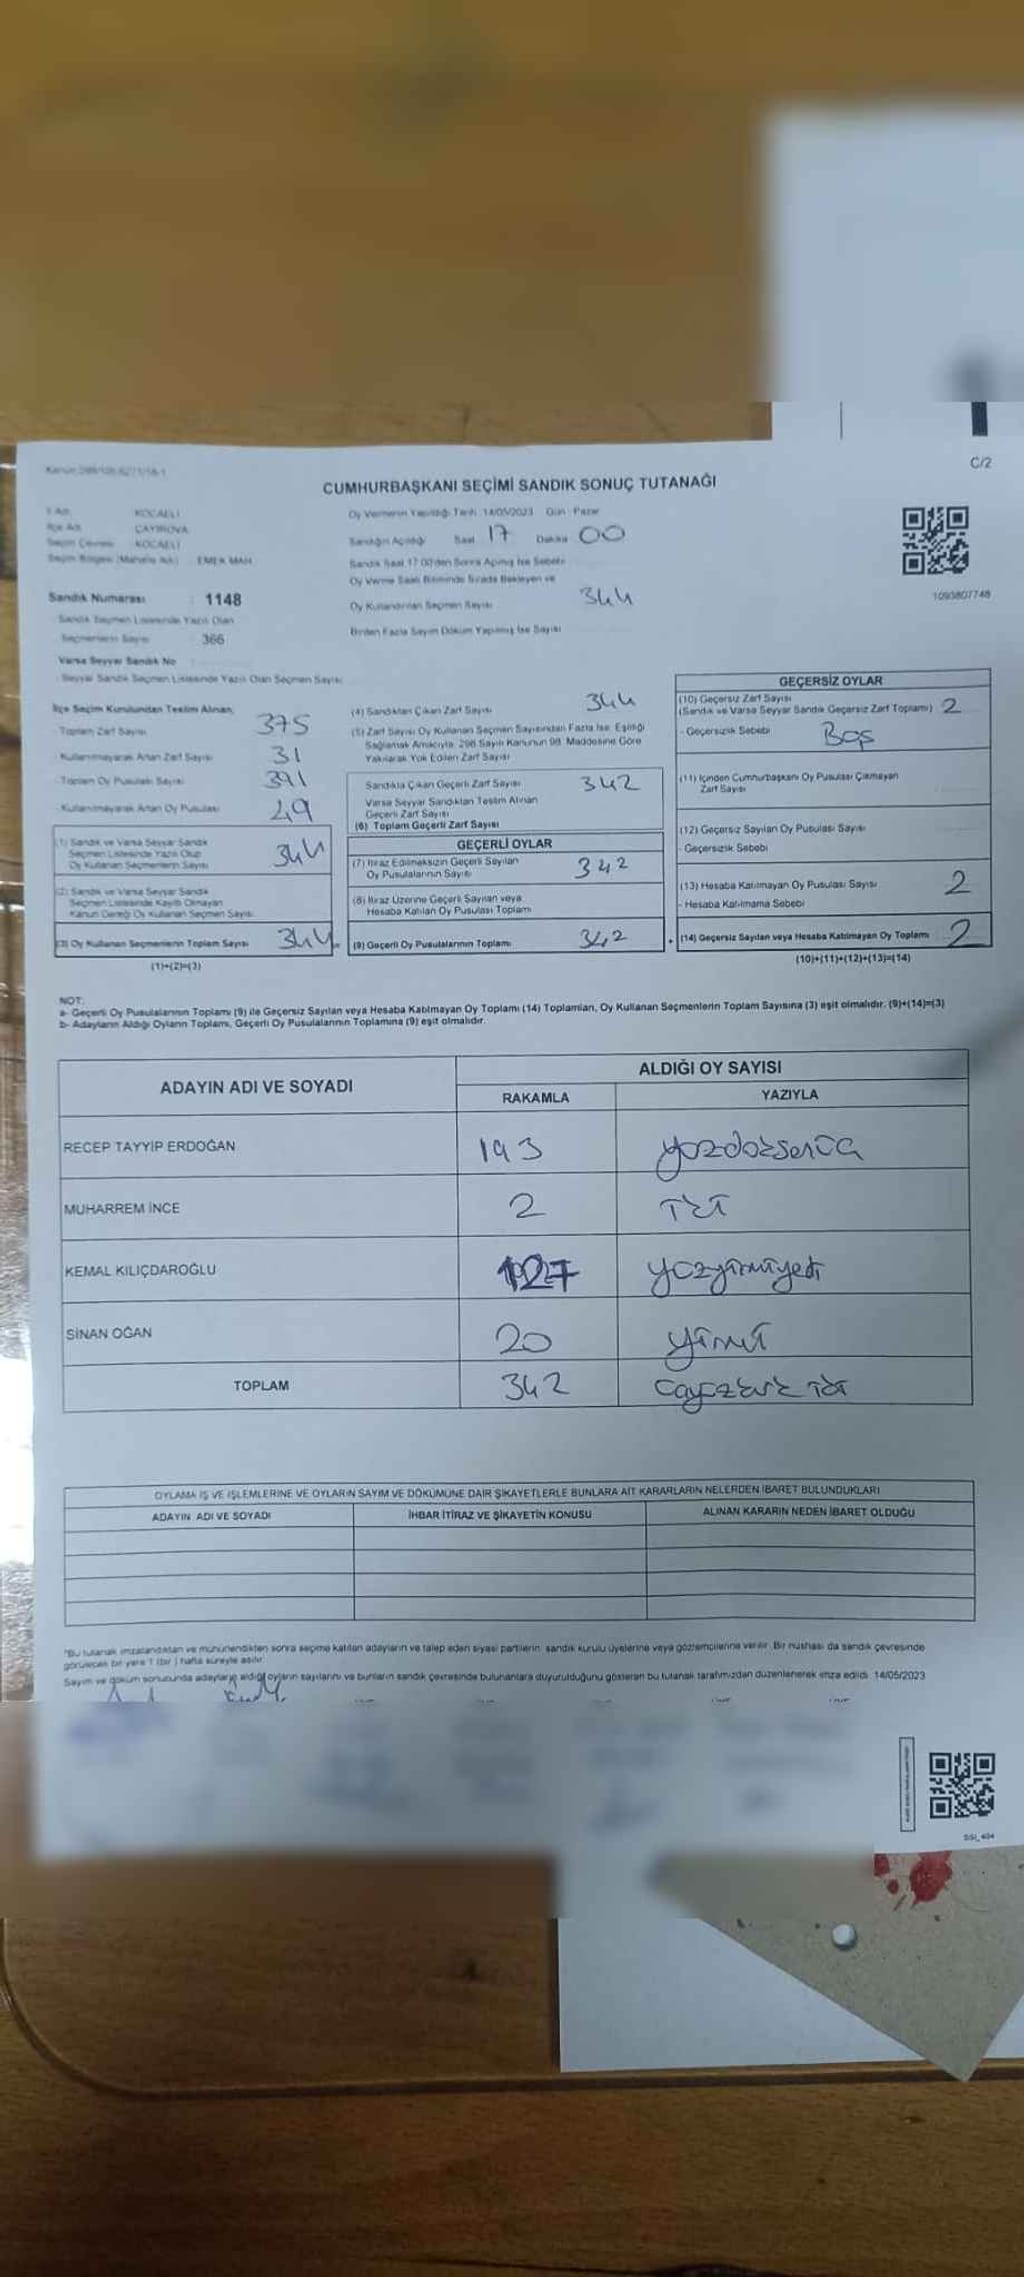 C/2
CUMHURBAŞKANI SEÇİMİ SANDIK SONUÇ TUTANAĞI
İl Adı KOCAELİ
İlçe Adı ÇAYIROVA
Seçim Çevresi KOCAELİ
Seçim Bölgesi (Mahalle Adı) EMEK MAH
Sandık Numarası : 1148
Sandık Seçmen Listesinde Yazılı Olan
Seçmenlerin Sayısı 366
Varsa Seyyar Sandık No
Seyyar Sandık Seçmen Listesinde Yazılı Olan Seçmen Sayısı
Oy Vermenin Yapıldığı Tarih 14/05/2023 Gün Pazar
Sandığın Açıldığı Saat 17 Dakika 00
Sandık Saat 17:00'den Sonra Açılmış İse Sebebi
Oy Verme Saati Bitiminde Sırada Bekleyen ve
Oy Kullandırılan Seçmen Sayısı 344
Birden Fazla Sayım Döküm Yapılmış İse Sayısı
1093807748
İlçe Seçim Kurulundan Teslim Alınan;
- Toplam Zarf Sayısı 375
- Kullanılmayarak Artan Zarf Sayısı 31
- Toplam Oy Pusulası Sayısı 391
- Kullanılmayarak Artan Oy Pusulası 49
(1) Sandık ve Varsa Seyyar Sandık
Seçmen Listesinde Yazılı Olup
Oy Kullanan Seçmenlerin Sayısı 344
(2) Sandık ve Varsa Seyyar Sandık
Seçmen Listesinde Kayıtlı Olmayan
Kanun Gereği Oy Kullanan Seçmen Sayısı
(3) Oy Kullanan Seçmenlerin Toplam Sayısı 344
(1)+(2)=(3)
(4) Sandıktan Çıkan Zarf Sayısı 344
(5) Zarf Sayısı Oy Kullanan Seçmen Sayısından Fazla İse; Eşitliği
Sağlamak Amacıyla; 298 Sayılı Kanunun 98. Maddesine Göre
Yakılarak Yok Edilen Zarf Sayısı
Sandıkta Çıkan Geçerli Zarf Sayısı 342
Varsa Seyyar Sandıktan Teslim Alınan
Geçerli Zarf Sayısı
(6) Toplam Geçerli Zarf Sayısı
GEÇERLİ OYLAR
(7) İtiraz Edilmeksizin Geçerli Sayılan
Oy Pusulalarının Sayısı 342
(8) İtiraz Üzerine Geçerli Sayılan veya
Hesaba Katılan Oy Pusulası Toplamı
(9) Geçerli Oy Pusulalarının Toplamı 342
GEÇERSİZ OYLAR
(10) Geçersiz Zarf Sayısı
(Sandık ve Varsa Seyyar Sandık Geçersiz Zarf Toplamı) 2
- Geçersizlik Sebebi Boş
(11) İçinden Cumhurbaşkanı Oy Pusulası Çıkmayan
Zarf Sayısı
(12) Geçersiz Sayılan Oy Pusulası Sayısı
- Geçersizlik Sebebi
(13) Hesaba Katılmayan Oy Pusulası Sayısı 2
- Hesaba Katılmama Sebebi
+ (14) Geçersiz Sayılan veya Hesaba Katılmayan Oy Toplamı 2
(10)+(11)+(12)+(13)=(14)
NOT:
a- Geçerli Oy Pusulalarının Toplamı (9) ile Geçersiz Sayılan veya Hesaba Katılmayan Oy Toplamı (14) Toplamları, Oy Kullanan Seçmenlerin Toplam Sayısına (3) eşit olmalıdır. (9)+(14)=(3)
b- Adayların Aldığı Oyların Toplamı, Geçerli Oy Pusulalarının Toplamına (9) eşit olmalıdır.
ADAYIN ADI VE SOYADI ALDIĞI OY SAYISI
RAKAMLA YAZIYLA
RECEP TAYYİP ERDOĞAN 193 yüzdoksanüç
MUHARREM İNCE 2 iki
KEMAL KILIÇDAROĞLU 127 yüzyirmiyedi
SİNAN OĞAN 20 yirmi
TOPLAM 342 üçyüzkırk iki
OYLAMA İŞ VE İŞLEMLERİNE VE OYLARIN SAYIM VE DÖKÜMÜNE DAİR ŞİKAYETLERLE BUNLARA AİT KARARLARIN NELERDEN İBARET BULUNDUKLARI
ADAYIN ADI VE SOYADI İHBAR İTİRAZ VE ŞİKAYETİN KONUSU ALINAN KARARIN NEDEN İBARET OLDUĞU
*Bu tutanak imzalandıktan ve mühürlendikten sonra seçime katılan adayların ve talep eden siyasi partilerin, sandık kurulu üyelerine veya gözlemcilerine verilir. Bir nüshası da sandık çevresinde
görülecek bir yere 1 (bir) hafta süreyle asılır.
Sayım ve döküm sonucunda adayların aldığı oyların sayılarını ve bunların sandık çevresinde bulunanlara duyurulduğunu gösteren bu tutanak tarafımızdan düzenlenerek imza edildi. 14/05/2023